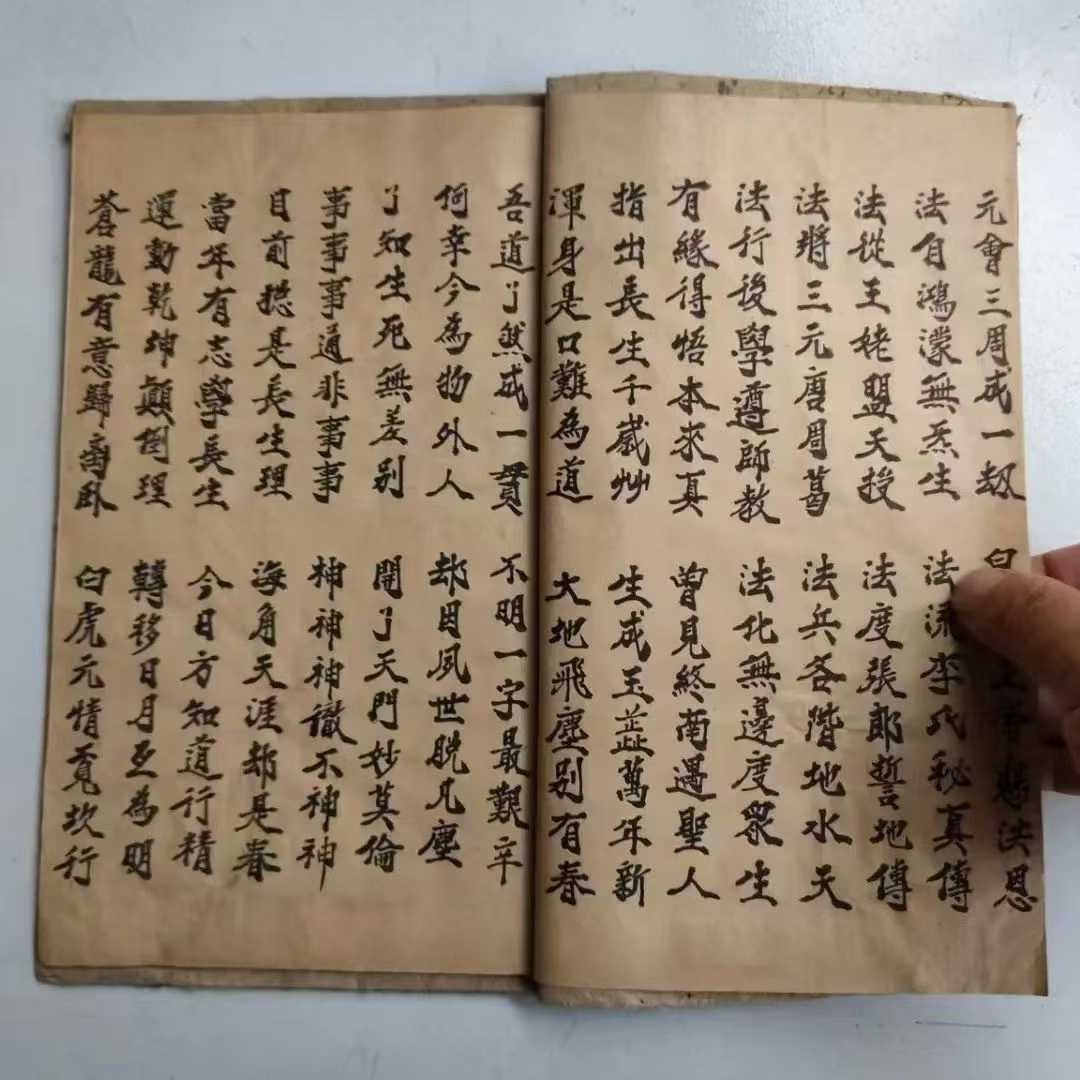 元會三周成一劫 白
法自鴻濛無炁生 法流李氏秘真傳
法從王姥盟天授 法度張郎誓地傳
法將三元唐周葛 法兵各階地水天
法行後學遵師教 法化無邊度眾生
有緣得悟本來真 曾見終南遇聖人
指出長生千歲艸 生成玉蕋萬年新
渾身是口難為道 大地飛塵别有春
吾道了然成一貫 不明一字最艱辛
何幸今為物外人 却因夙世脱凡塵
了知生死無差别 開了天門妙莫倫
事事事通非事事 神神神徹不神神
目前揔是長生理 海角天涯却是春
當年有志學長生 今日方知道行精
運動乾坤顛倒理 轉移日月互為明
蒼龍有意歸离卧 白虎元情覓坎行